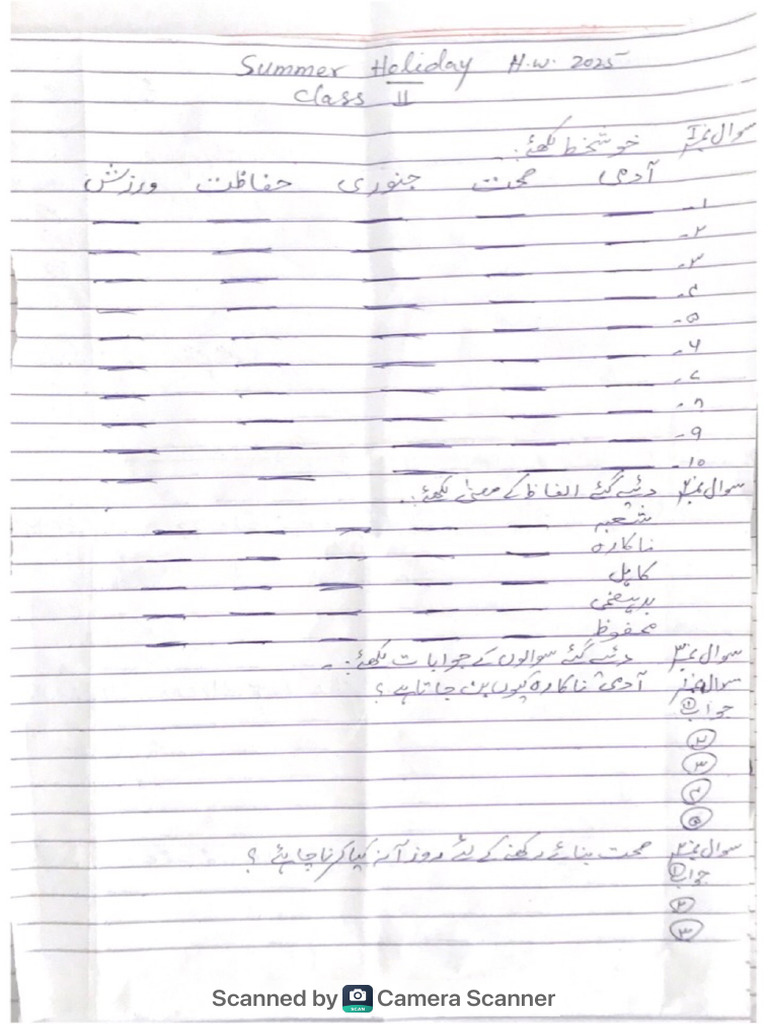 Summer Holiday H.W. 2025
Class II
سوال نمبر 1 خوشخط لکھئے:۔
آدمی صحت جنوری حفاظت ورزش
۱-
۲-
۳-
۴-
۵-
۶-
۷-
۸-
۹-
۱۰-
سوال نمبر ۲ دئیے گئے الفاظ کے معنی لکھئے:۔
شعبہ
ناکارہ
کاہل
بدہضمی
محفوظ
سوال نمبر ۳ دئیے گئے سوالوں کے جوابات لکھئے:۔
سوال نمبر ۱ آدمی ناکارہ کیوں بن جاتا ہے ؟
جواب ۱
۲
۳
۴
۵
سوال نمبر ۲ صحت بنائے رکھنے کے لئے روزآنہ کیا کرنا چاہئے ؟
جواب ۱
۲
۳
Scanned by Camera Scanner